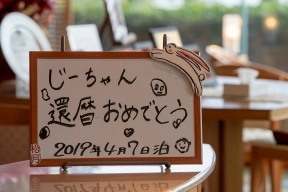 じーちゃん
還暦おめでとう
2019年4月7日泊